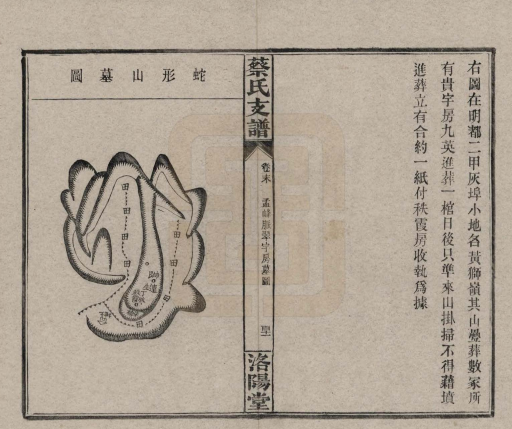 右圖在明都二甲灰埠小地名黃獅嶺其山疊葬數冢所
有貴字房九英進葬一棺日後只準來山掛掃不得藉墳
進葬立有合約一紙付秩霞房收執為據
蔡氏支譜
卷末
洛陽堂
蛇形山墓圖
田
田
田
田
田
田